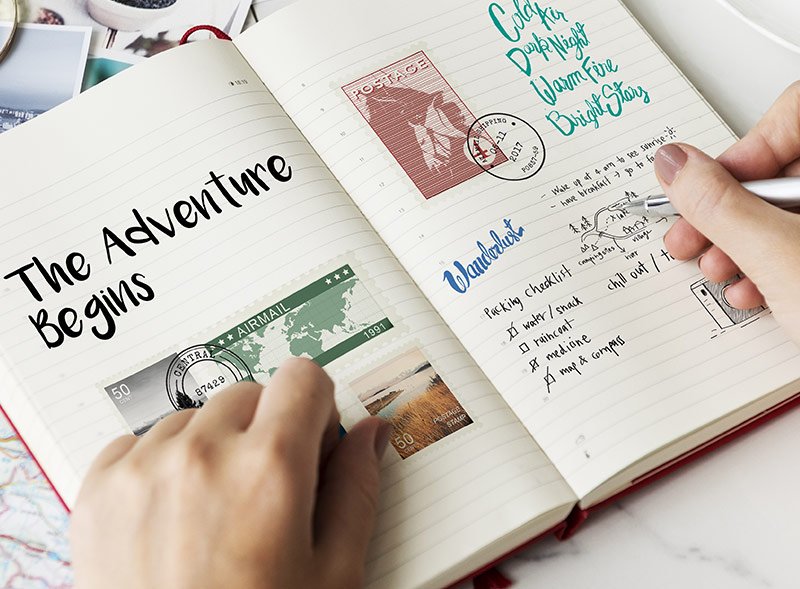 The Adventure
Begins
AIRMAIL
1991
CENTRAL
87429
50
CENT
POSTAGE
STAMP
50
Cold Air
Dark Night
Warm Fire
Bright Stars
POSTAGE
SHIPPING
04-11
2017
Wanderlust
- Wake up at 4 am to see sunrise
- have breakfast → go to
camping sites
river
village
chill out /
Packing checklist
water/snack
raincoat
medicine
map & compass